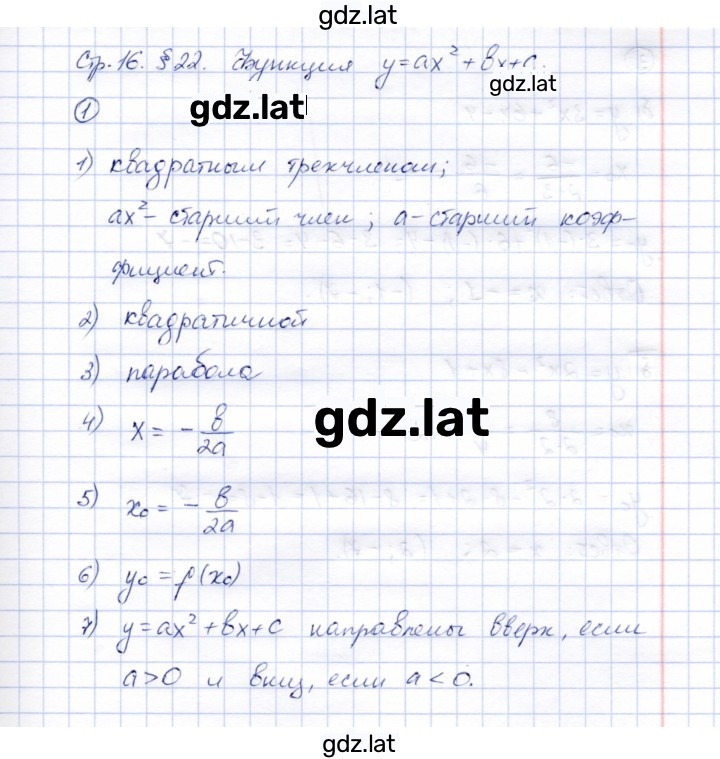 gdz.lat
Стр. 16. § 22. Функция y=ax²+bx+c.
gdz.lat
① gdz.lat
1) квадратным трехчленом;
ax² – старший член; a – старший коэф-
фициент.
2) квадратичной
3) парабола
4) x = - b/2a
gdz.lat
5) x₀ = - b/2a
6) y₀ = f(x₀)
7) y=ax²+bx+c направлены вверх, если
a>0 и вниз, если a<0.
gdz.lat